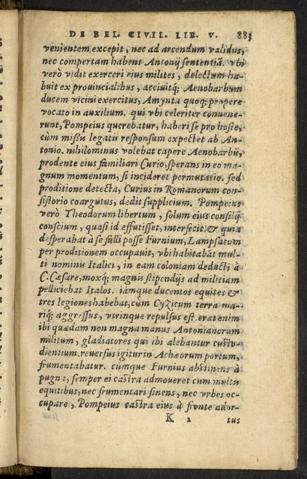 DE BEL. CIVIL. LIB. V. 883
venientem excepit, nec ad arcendum validus,
nec compertam habens Antonij sententiã. vbi
verò vidit exerceri eius milites, delectum ha-
buit ex prouincialibus, acciuitq́; Aenobarbum
ducem vicini exercitus, Amynta quoq; propere
vocato in auxilium. qui vbi celeriter conuene-
runt, Pompeius querebatur, haberi se pro hoste,
cùm missu legati responsum expectet ab An-
tonio. nihilominus volebat capere Aenobarbũ,
prodente eius familiari Curio, sperans in eo ma-
gnum momentum, si incideret permutatio. sed
proditione detecta, Curius in Romanorum con-
sistorio coargutus, dedit supplicium. Pompeius
verò Theodorum libertum, solum eius consilij
conscium, quasi id effutisset, interfecit. & quia
desperabat à se falli posse Furnium, Lampsacum
per proditionem occupauit, vbi habitabãt mul-
ti nominis Italici, in eam coloniam deducti à
C. Cæsare, moxq́; magnis stipendijs ad militiam
pelliciebat Italos. iamque ducentos equites &
tres legiones habebat, cùm Cyzicum terra ma-
riq́; aggressus, vtrinque repulsus est. erat enim
ibi quædam non magna manus Antonianorum
militum, gladiatores qui ibi alebantur custo-
dientium. reuersus igitur in Achæorum portum,
frumentabatur. cumque Furnius abstinens à
pugna, semper ei castra admoueret cum multis
equitibus, nec frumentari sinens, nec vrbes oc-
cupare, Pompeius castra eius à fronte ador-
K 2 tus